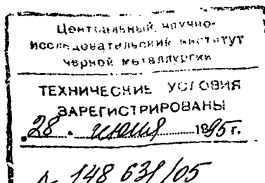 Центральный научно-
исследовательский институт
черной металлургии
ТЕХНИЧЕСКИЕ УСЛОВИЯ
ЗАРЕГИСТРИРОВАНЫ
28. июля 1995г.
148 631/05